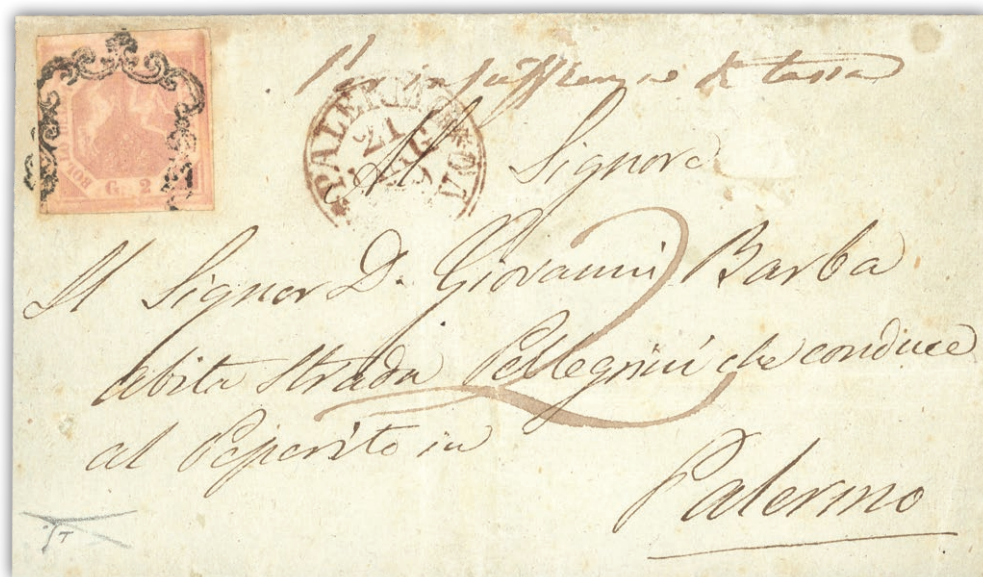 Per insufficienza di tassa
PALERMO
21
Al Signore
Il Signor D. Giovanni Barba
abita Strada Pellegrini che conduce
al in
Palermo
2
BOLLO
G. 2